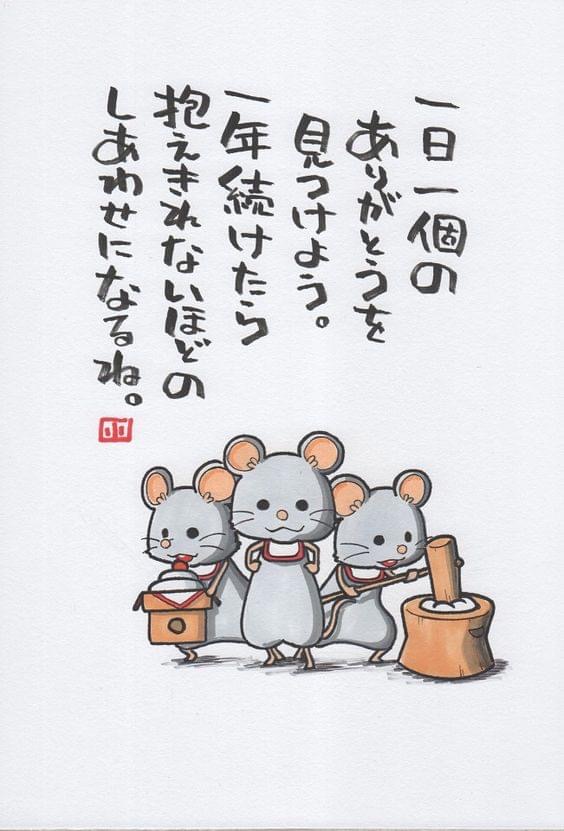 一日一個の
ありがとうを
見つけよう。
一年続けたら
抱えきれないほどの
しあわせになるね。